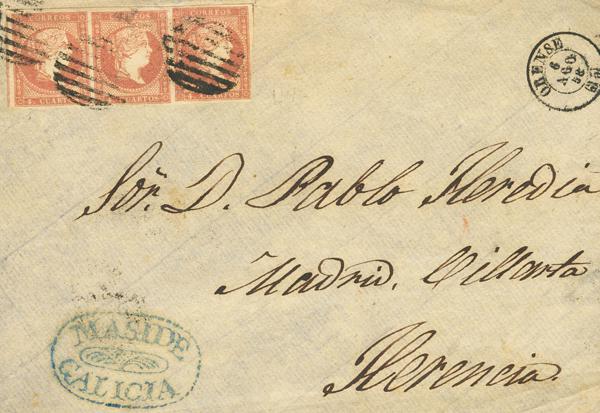 CORREOS CORREOS CORREOS
4 CUARTOS CUARTOS 4 CUARTOS
ORENSE
6
AGO
58
Sōr. D. Pablo Heredia
Madrid. Villarta
Herencia.
MASIDE
GALICIA